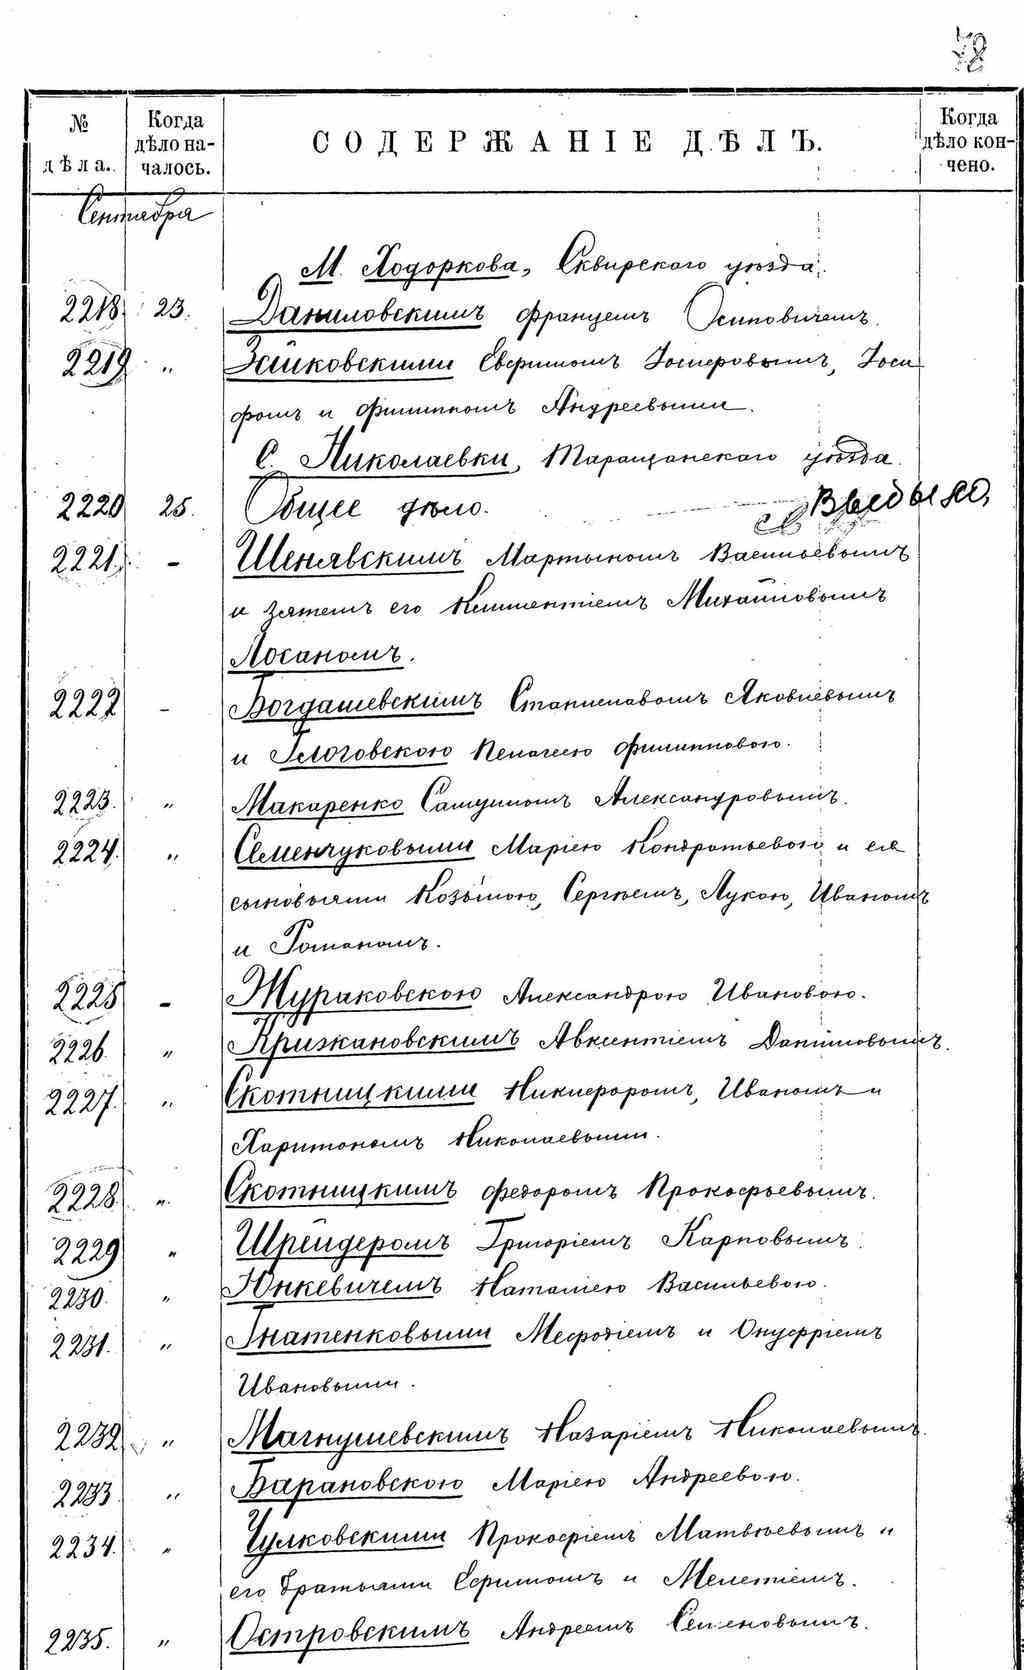 № дѣла.
Когда дѣло началось.
СОДЕРЖАНІЕ ДѢЛЪ.
Когда дѣло кончено.
Сентября
М. Ходоркова, Сквирскаго уѣзда.
2218 23. Даниловскимъ Францемъ Осиповичемъ.
2219 " Зайковскими Евфимомъ Іосифовымъ, Іоси
фомъ и Филиппомъ Андреевыми.
С. Николаевки, Таращанскаго уѣзда.
2220 25. Общее дѣло. Выбыло,
2221. - Шенявскимъ Мартыномъ Васильевымъ
и зятемъ его Климентіемъ Михайловымъ
Лосаномъ.
2222 - Богдашевскимъ Станиславомъ Яковлевымъ
и Глоговскою Пелагеею Филипповою.
2223. " Макаренко Самуиломъ Александровымъ.
2224. " Семенчуковыми Маріею Кондратьевою и ея
сыновьями Козьмою, Сергѣемъ, Лукою, Иваномъ
и Романомъ.
2225 - Жураковскою Александрою Ивановою.
2226. " Крижановскимъ Авксентіемъ Даниловымъ.
2227. " Скотницкими Никифоромъ, Иваномъ и
Харитономъ Николаевыми.
2228. " Скотницкимъ Федоромъ Прокофьевымъ.
2229 " Шрейдеромъ Григоріемъ Карповымъ.
2230. " Юнкевичемъ Наталіею Васильевою.
2231. " Гнатенковыми Мефодіемъ и Онуфріемъ
Ивановыми.
2232 " Магнушевскимъ Назаріемъ Николаевымъ.
2233 " Барановскою Маріею Андреевою.
2234. " Чулковскими Прокофіемъ Матвѣевымъ и
его братьями Ефимомъ и Мелетіемъ.
2235. " Островскимъ Андреемъ Семеновымъ.